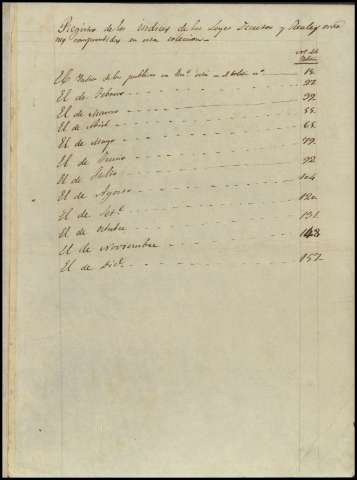 Registro de los Indices de las Leyes Decretos y Reales orde
nes comprendidos en esta coleccion
El Indice de los publicados en En.º esta al folio n.º 18.
El de Febrero 27
El de Marzo 39.
El de Abril 55.
El de Mayo 65.
El de Junio 79.
El de Julio 92
El de Agosto 104
El de Set.e 120
El de Octubre 131.
El de Noviembre 143
El de Dic.e 157.